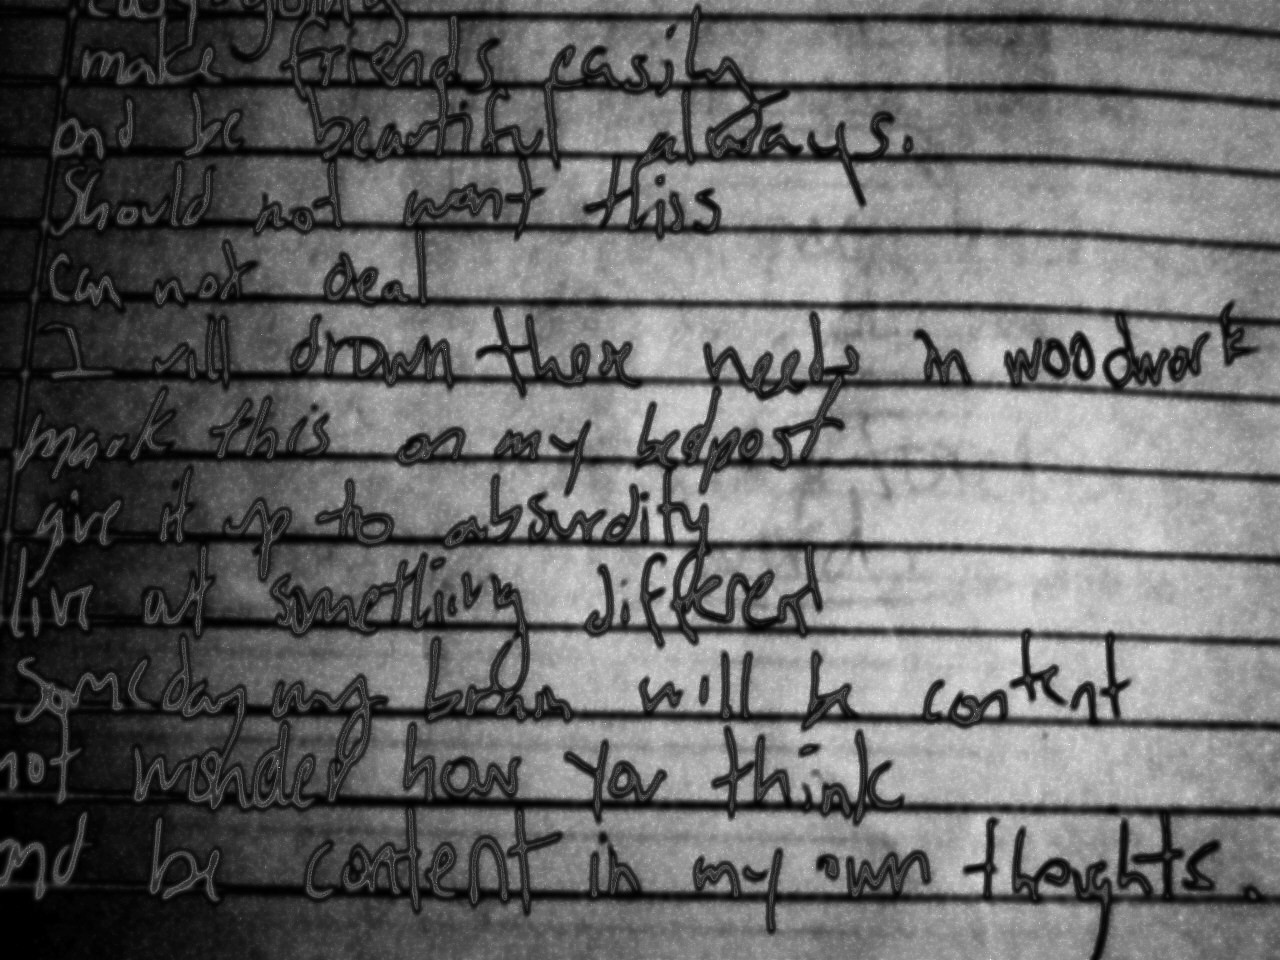 make friends easily
and be beautiful always.
Should not want this
can not deal
I will drown these needs in woodwork
mark this on my bedpost
give it up to absurdity
live at something different
Someday my brain will be content
not wonder how you think
and be content in my own thoughts.